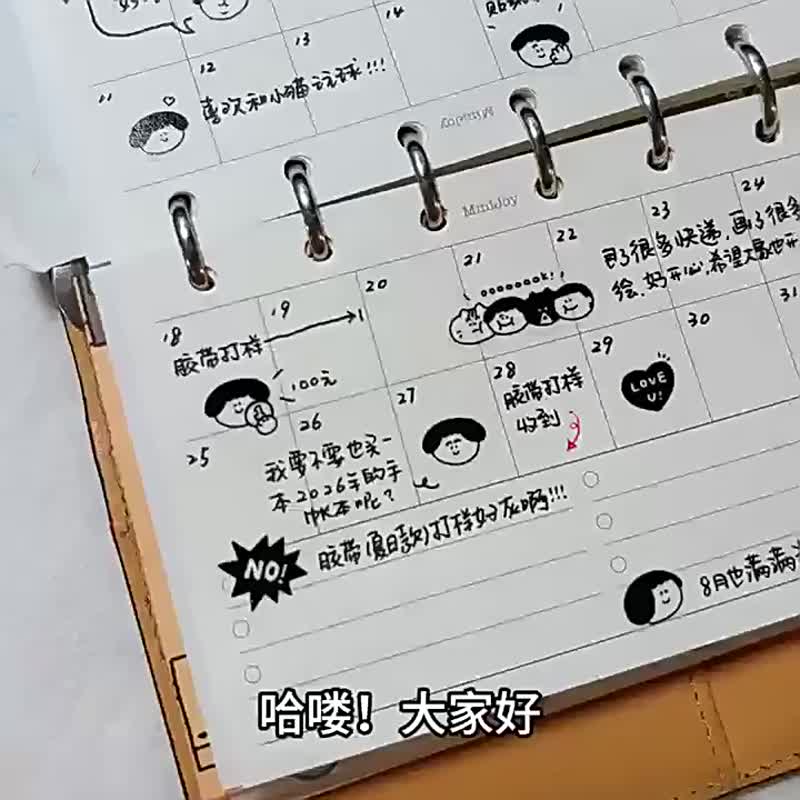 11
12
13
14
喜欢和小猫玩球!!!
MiniJoy
MiniJoy
18
19
20
21
22
23
24
胶带打样
100元
oooooook!
买了很多快递,画了很多
绘,好开心,希望大家也开
25
26
27
28
29
30
31
我要不要也买一
本2026年的手
帐本呢?
胶带打样
收到
LOVE
U!
NO!
胶带(夏日款)打样好灰啊!!!
8月也满满
哈喽!大家好